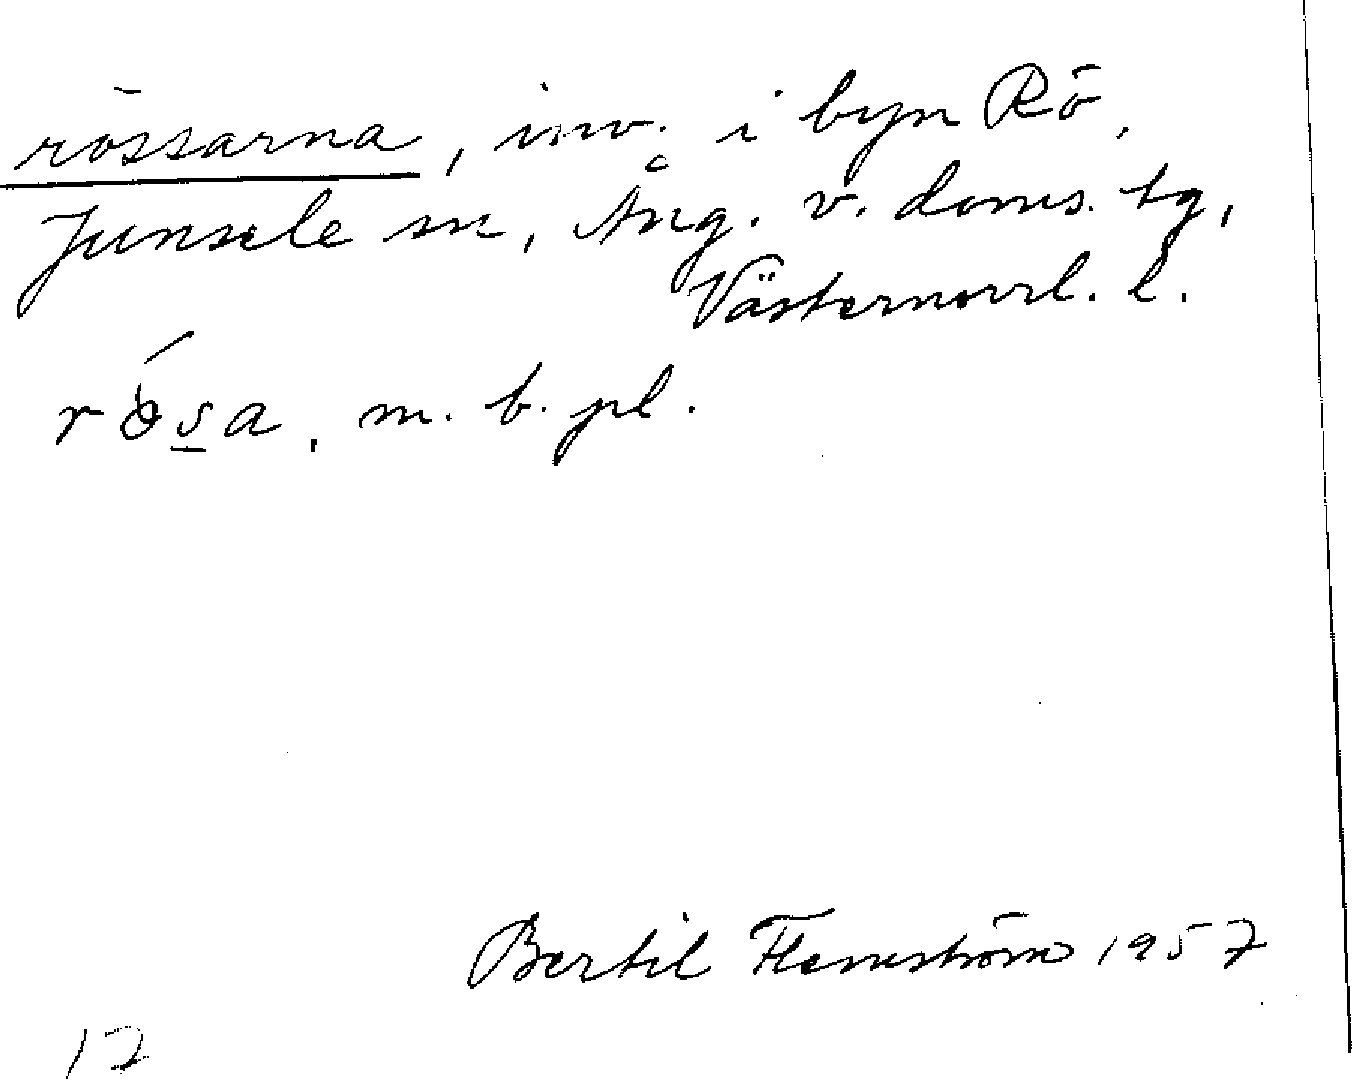 rössarna, inv. i byn Rö,
Junsele sn, Ång. v. doms. tg,
Västernorrl. l.
rǿsa, m. b. pl.
Bertil Flemström 1957
17